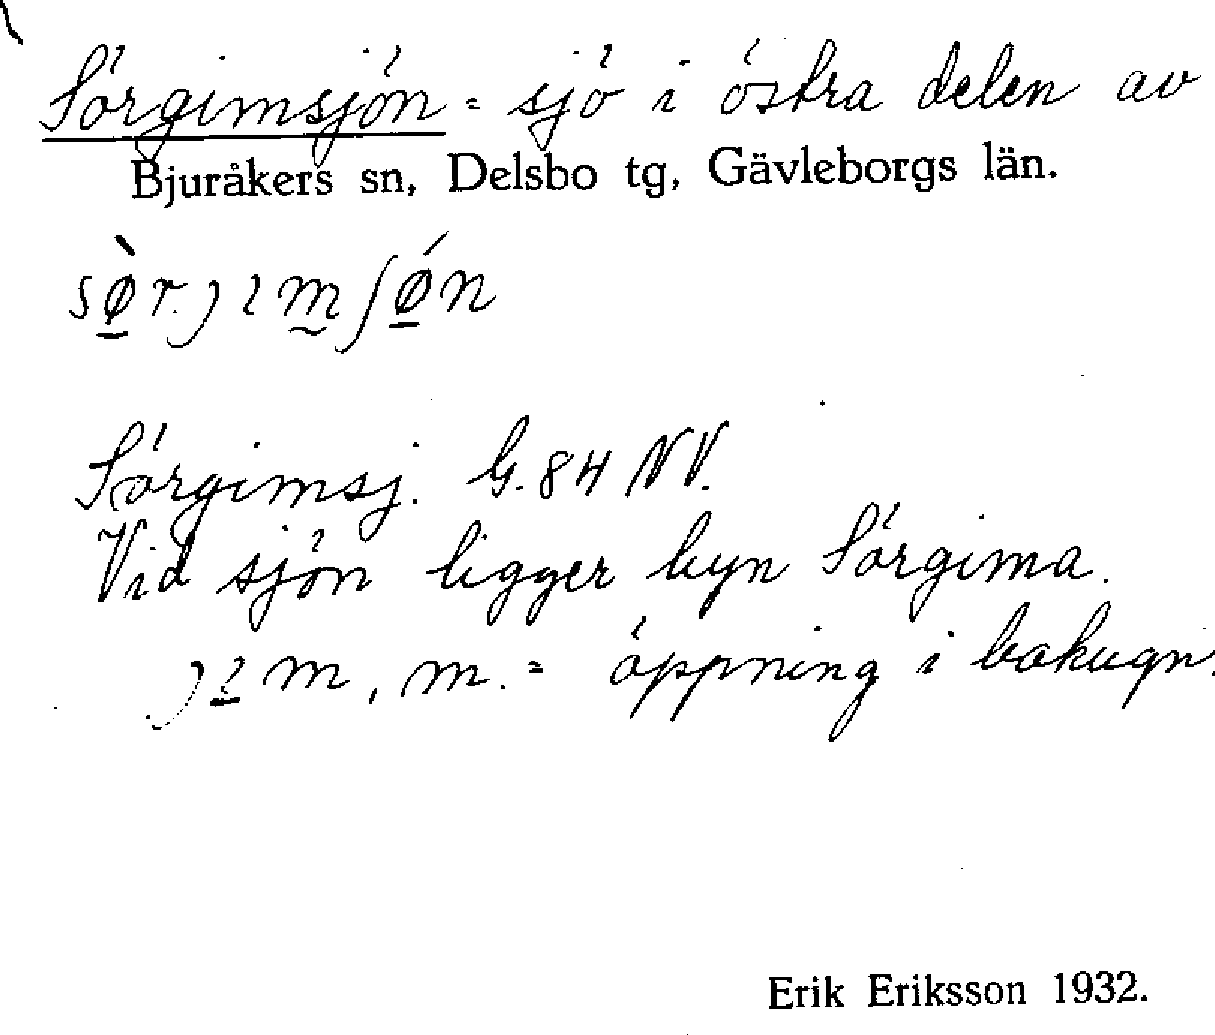 Sörgimsjön = sjö i östra delen av
Bjuråkers sn, Delsbo tg, Gävleborgs län.
sø̱̀r.ȷım̰ʃǿ̱n
Sörgimsj. G. 84 NV.
Vid sjön ligger byn Sörgima.
ȷı̱m, m. = öppning i bakugn.
Erik Eriksson 1932.